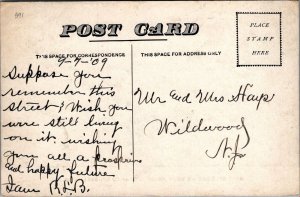 POST CARD
THIS SPACE FOR CORRESPONDENCE
THIS SPACE FOR ADDRESS ONLY
PLACE
STAMP
HERE
9-7-09
Suppose you
remember this
street & Wish you
were still living
on it. wishing
you all a
and happy future
I am R.L.B.
Mr and Mrs Hays
Wildwood
N.J.